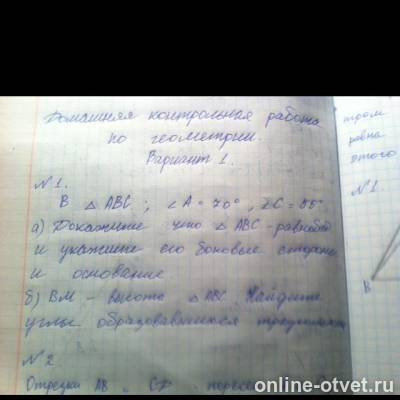 Домашняя контрольная работа
по геометрии.
Вариант 1.
N 1.
В △ ABC ; ∠A = 70°, ∠C = 55°
а) Докажите что △ ABC - равнобед
и укажите его боковые стороны
и основание
б) BM - высота △ ABC. Найдите
углы образовавшихся
N 2
Отрезки AB и
тром
равна
этого
N 1
B
online-otvet.ru